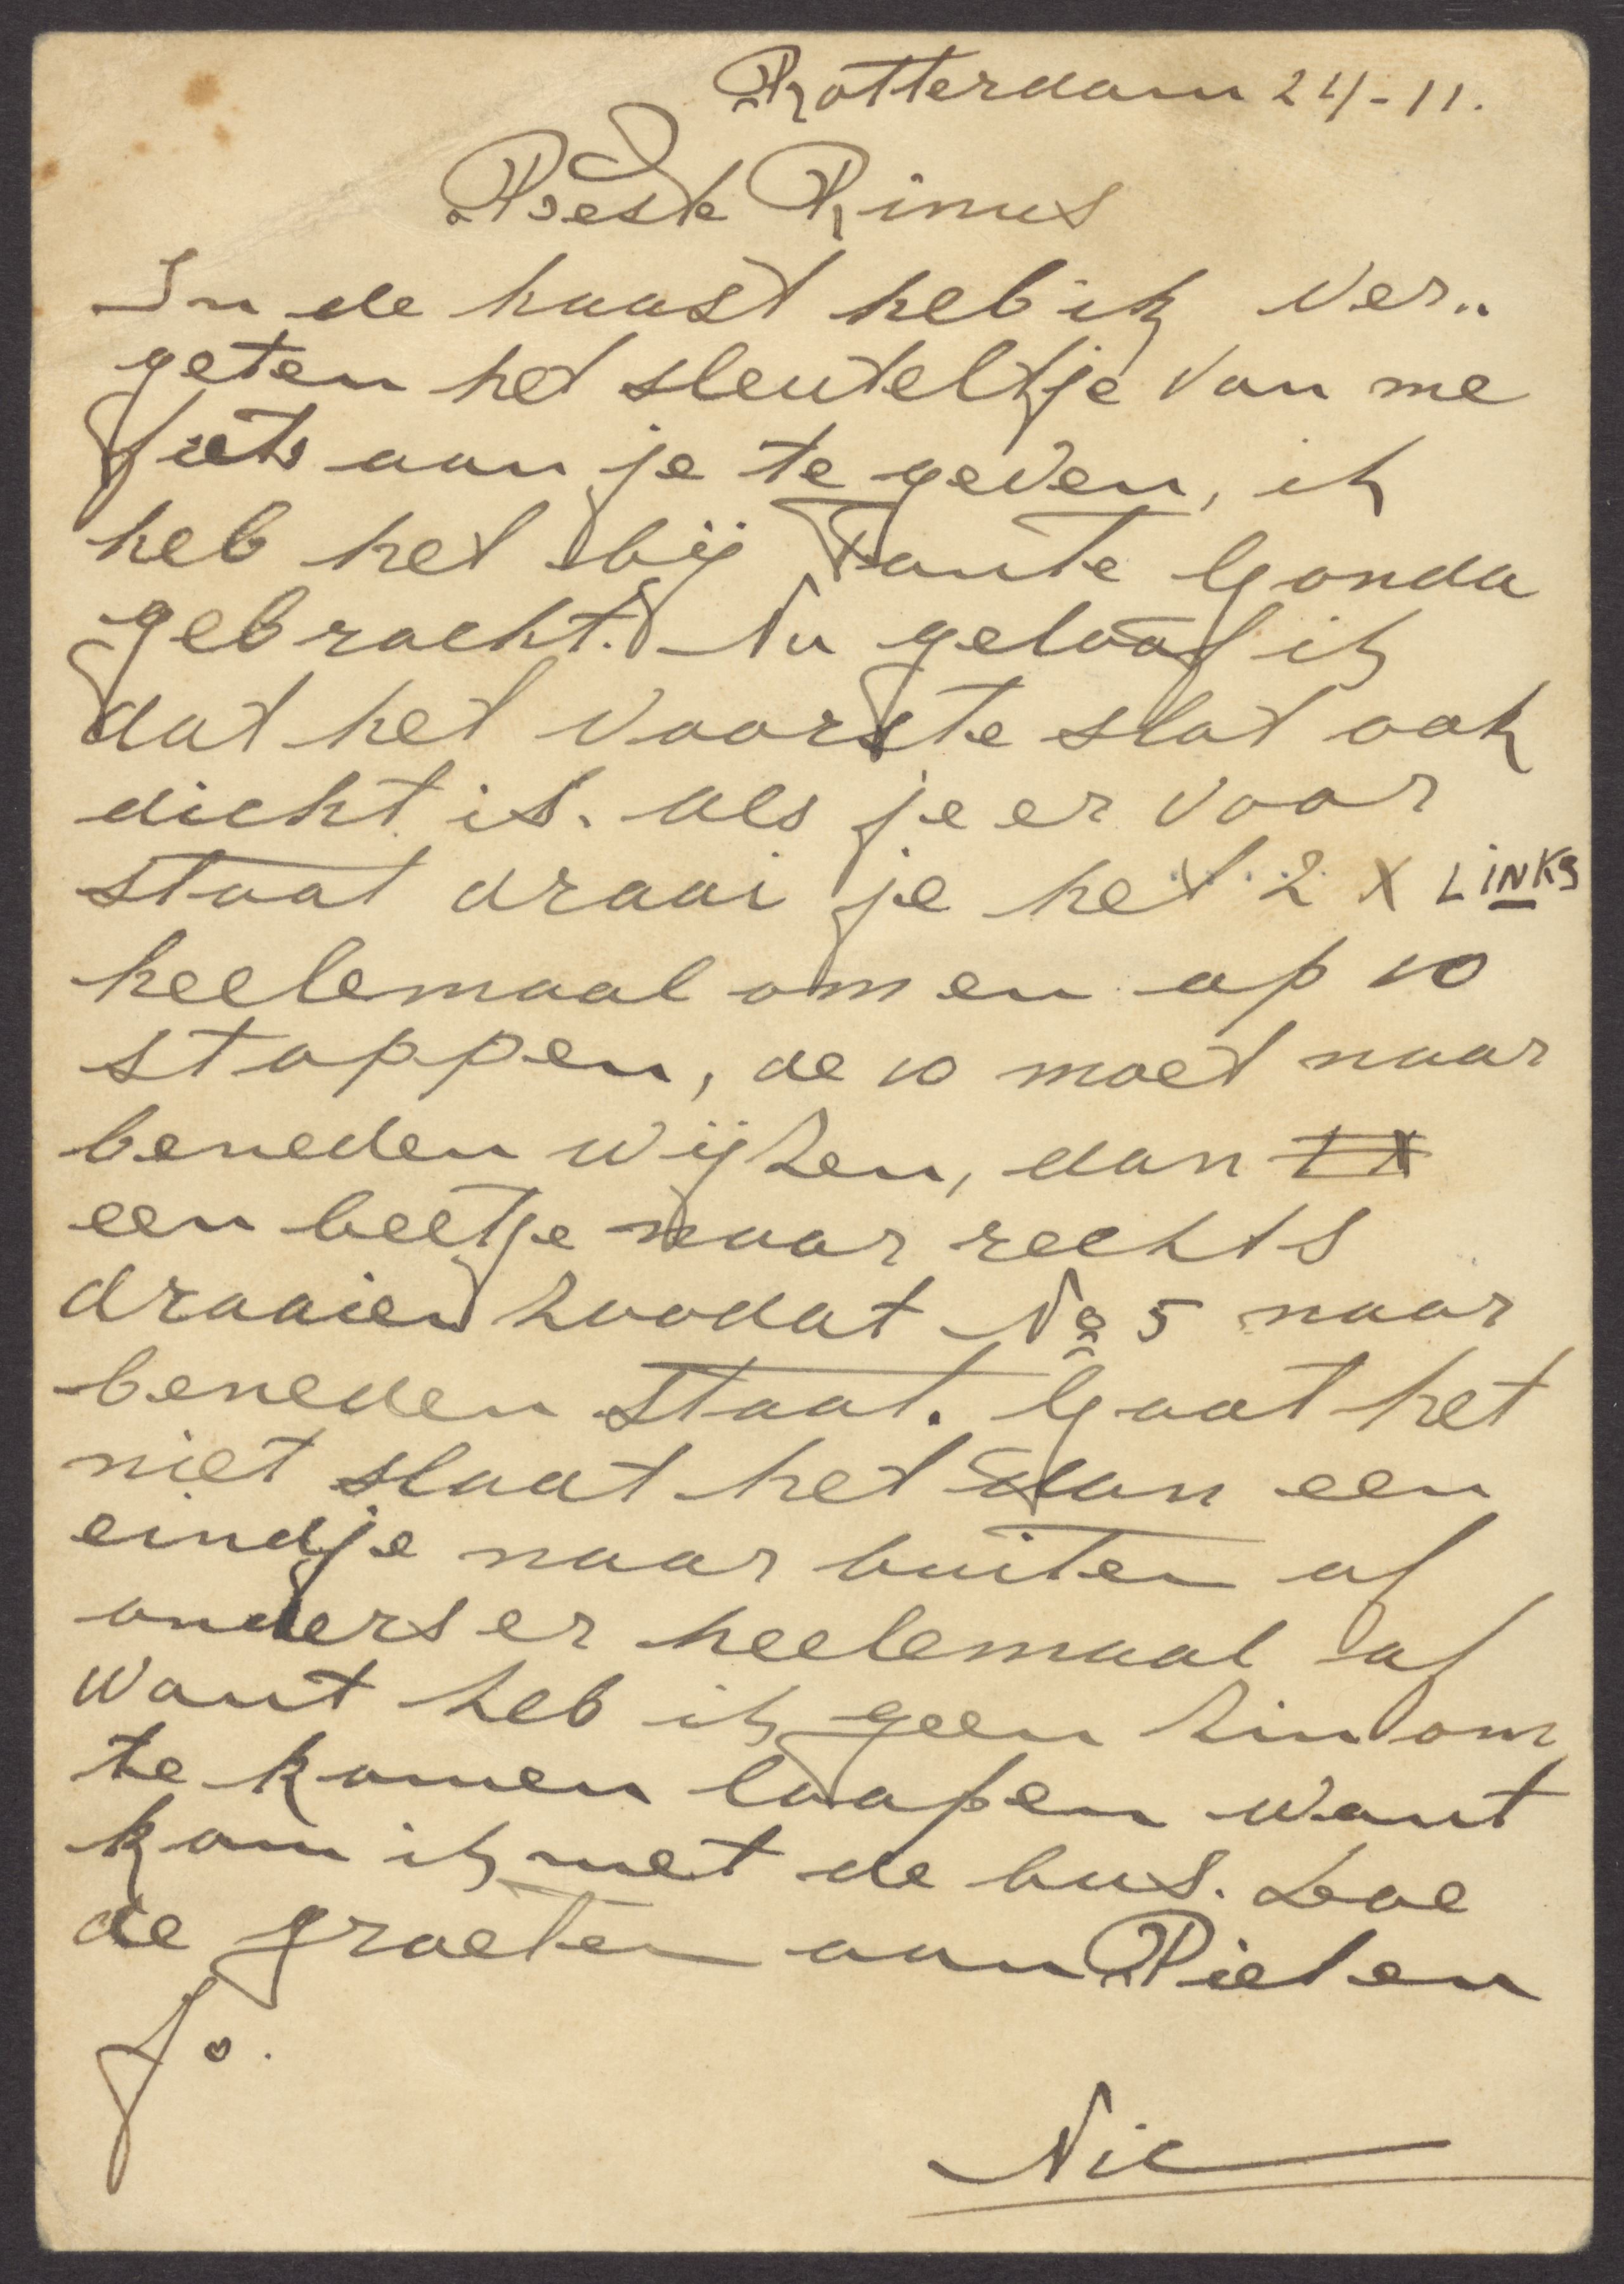 Rotterdam 24-11.
Beste Rinus
In de haast heb ik ver..
geten het sleuteltje van me
fiets aan je te geven, ik
heb het bij Tante Gonda
gebracht. Nu geloof ik
dat het voorste slot ook
dicht is. als je er voor
staat draai je het 2 X LiNKS
heelemaal om en op 10
stoppen, de 10 moet naar
beneden wijzen, dan
een beetje naar rechts
draaien zoodat No 5 naar
beneden staat. Gaat het
niet slaat het dan een
eindje naar buiten of
anders er heelemaal af
want heb ik geen zin om
te komen loopen want
kom ik met de bus. Doe
de groeten aan Piet en
Jo.
Nic